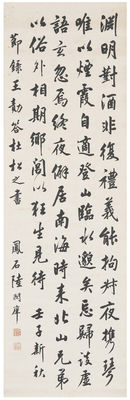 淵明對酒非復禮義能拘叔夜攜琴
唯以煙霞自適登山臨水邈矣忘歸談虛
語玄忽焉終夜僻居南海時來北山兄弟
以俗外相期鄉閭以狂生見待 壬子新秋
節錄王勣答杜松之書 鳳石陸潤庠